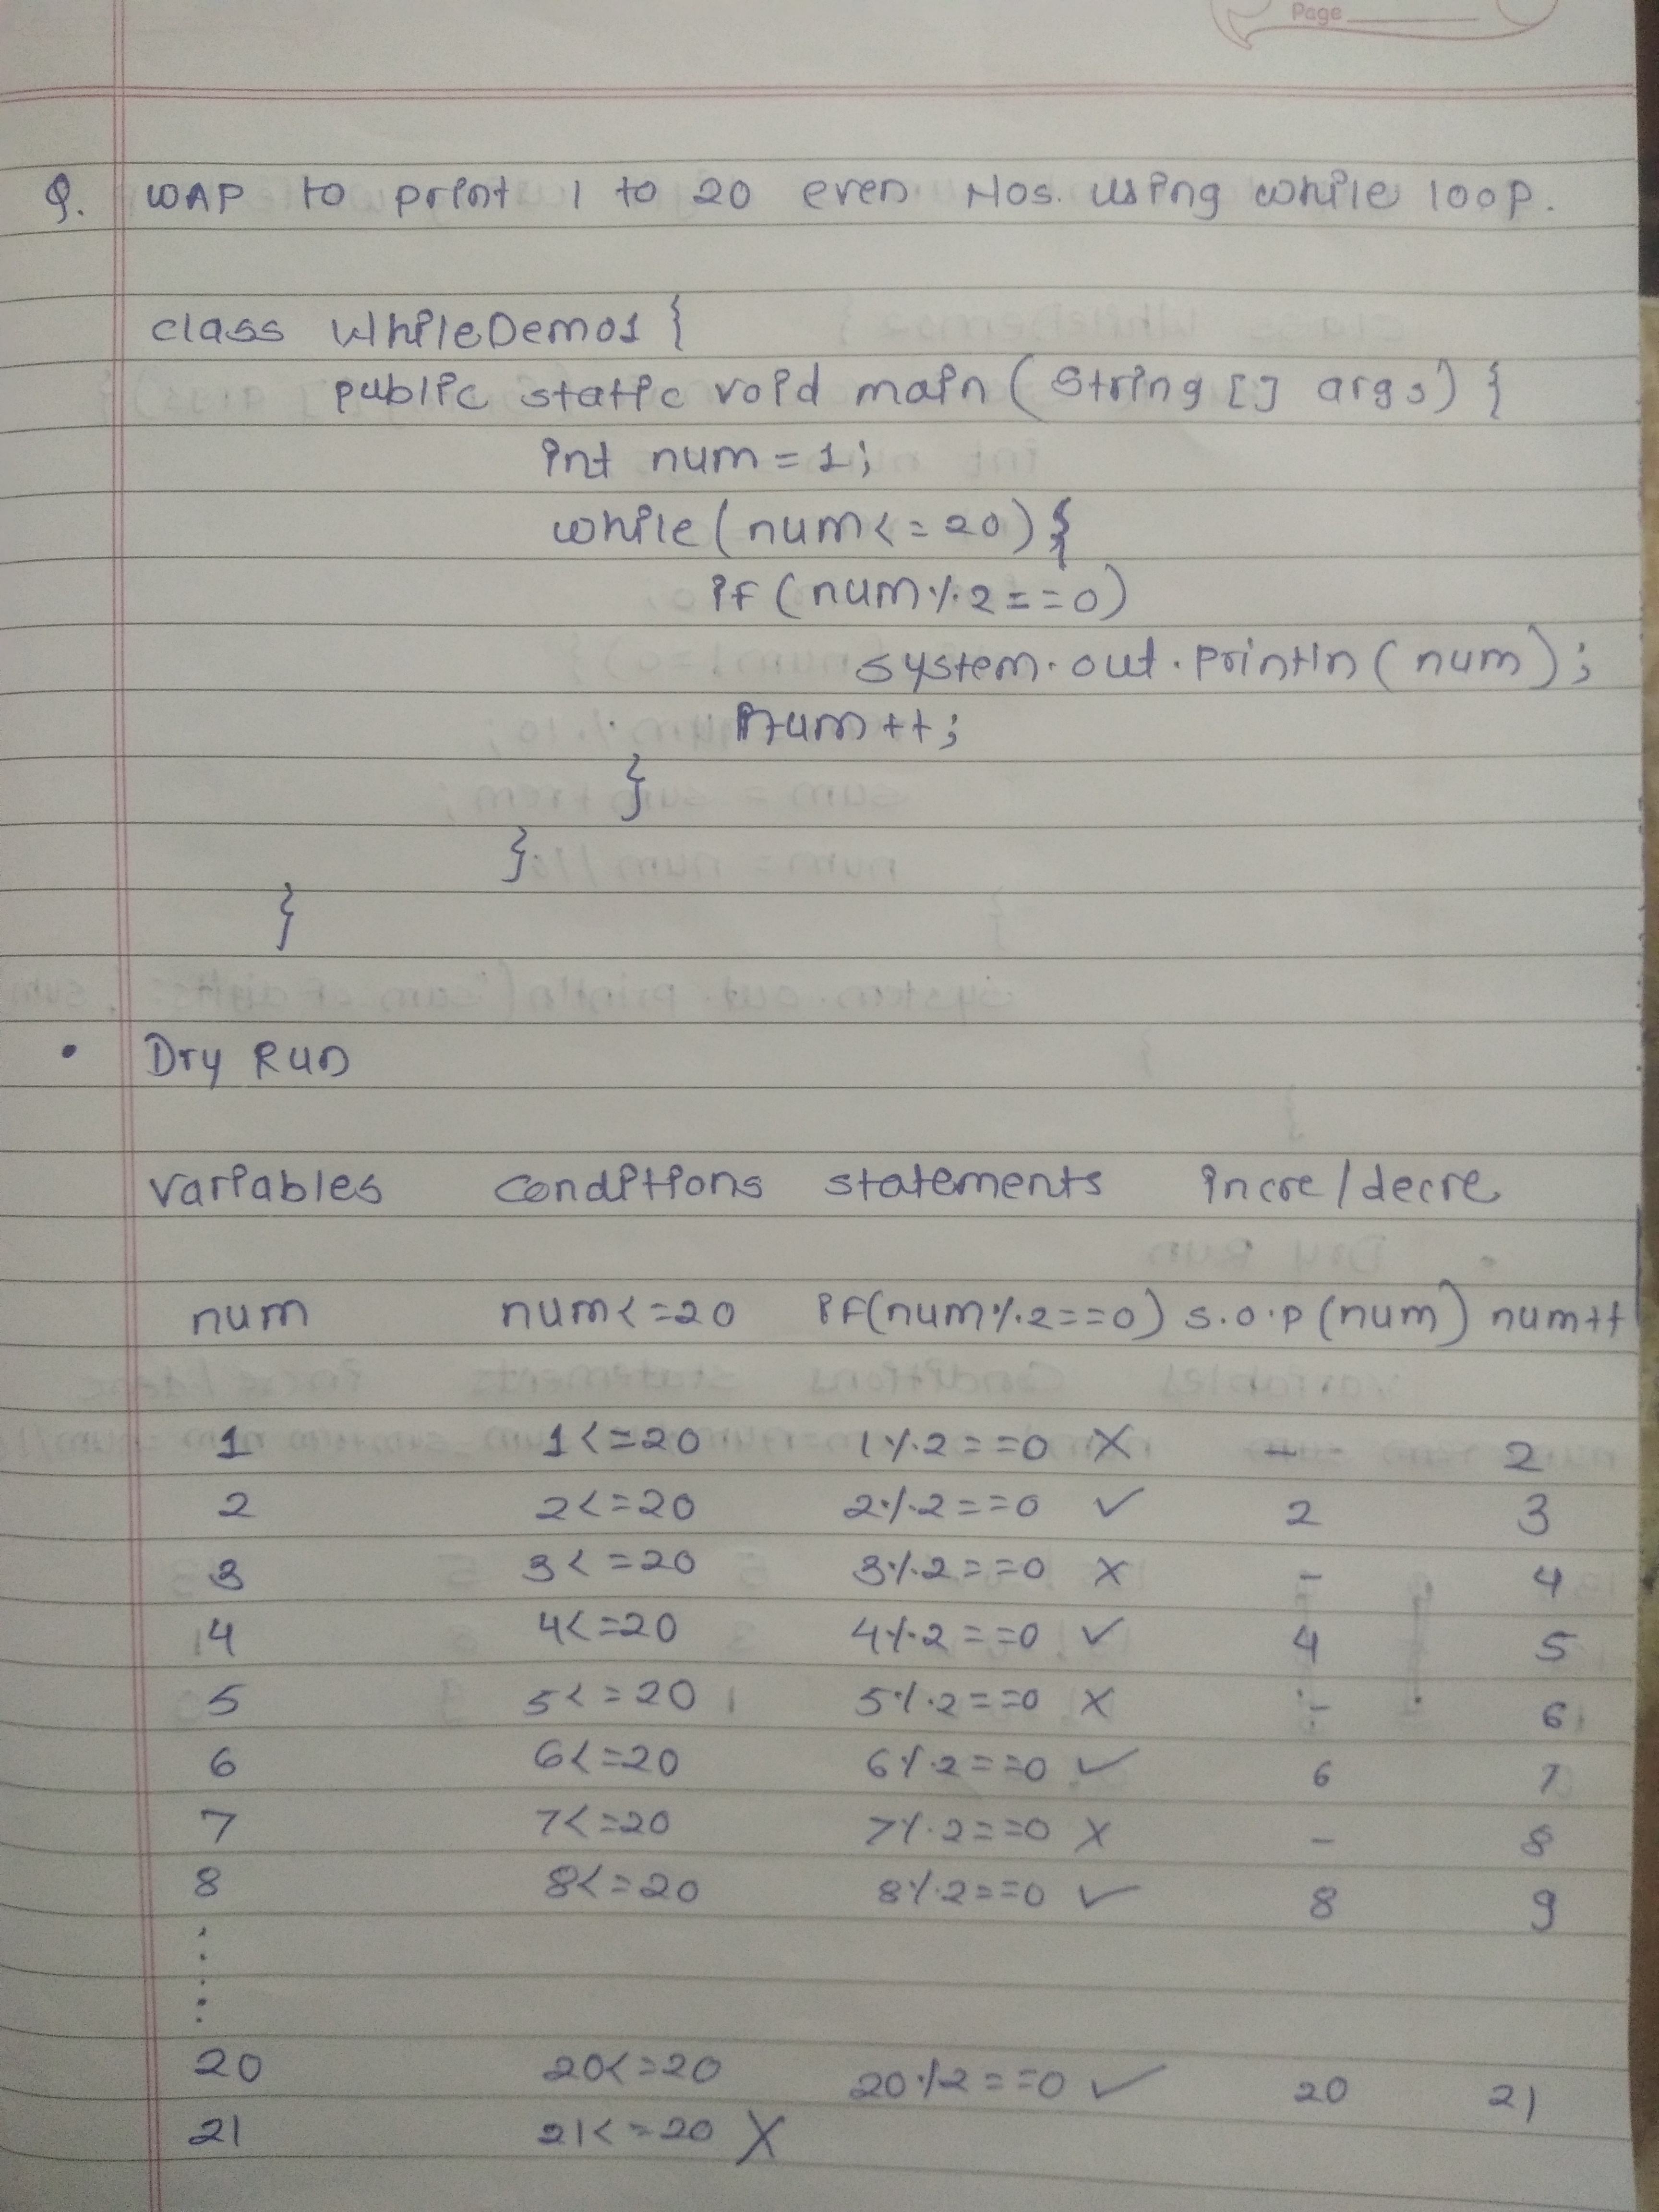 Page
Q. WAP to print 1 to 20 even Nos. using while loop.
class WhileDemo1 {
public static void main (String [] args) {
int num = 1;
while (num <= 20) {
if (num % 2 == 0)
system.out.println (num);
num ++;
}
}
}
• Dry Run
variables conditions statements incre/decre
num num<=20 if(num%2==0) s.o.p (num) num++
1 1<=20 1%2==0 X - 2
2 2<=20 2%2==0 ✓ 2 3
3 3<=20 3%2==0 X - 4
4 4<=20 4%2==0 ✓ 4 5
5 5<=20 5%2==0 X - 6
6 6<=20 6%2==0 ✓ 6 7
7 7<=20 7%2==0 X - 8
8 8<=20 8%2==0 ✓ 8 9
20 20<=20 20%2==0 ✓ 20 21
21 21<=20 X